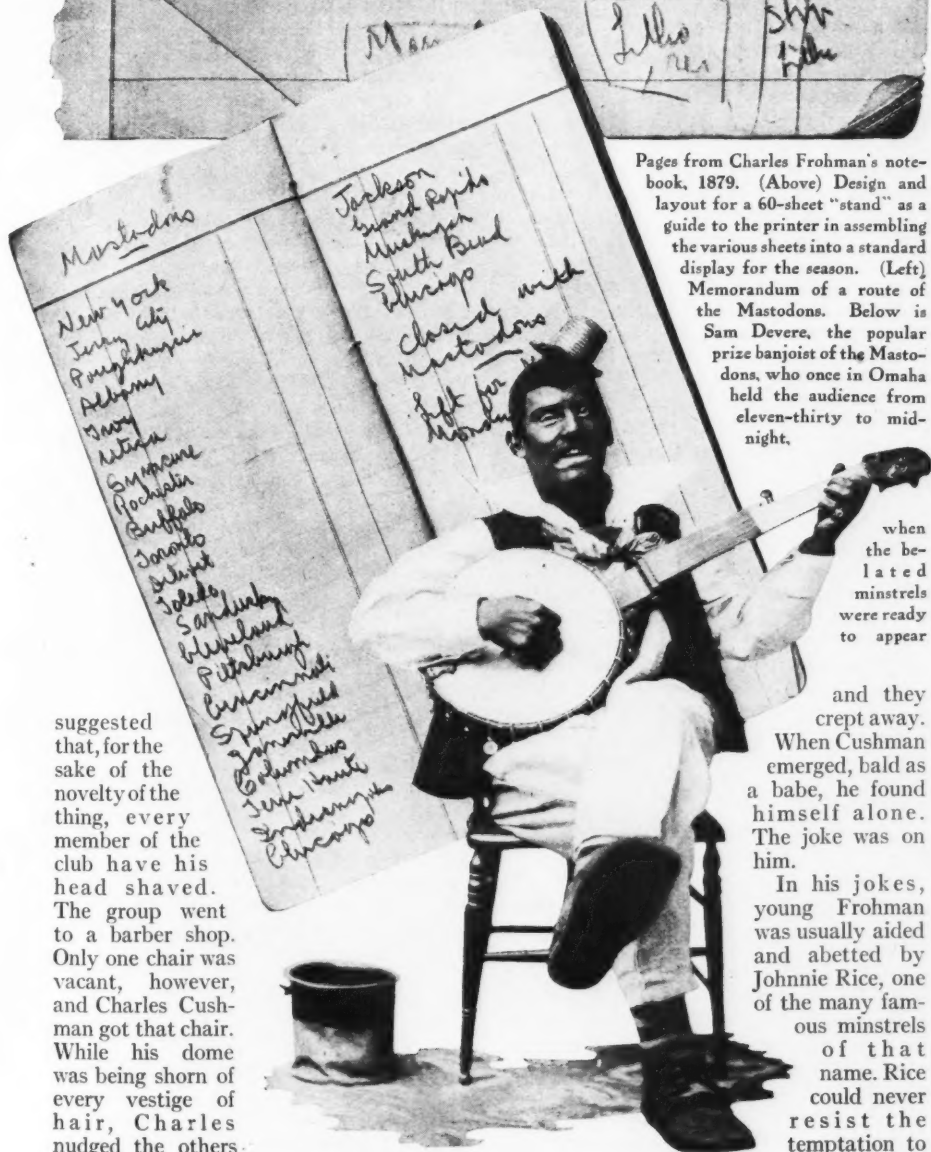 Litho
Litho
Pages from Charles Frohman's note-
book, 1879. (Above) Design and
layout for a 60-sheet "stand" as a
guide to the printer in assembling
the various sheets into a standard
display for the season. (Left)
Memorandum of a route of
the Mastodons. Below is
Sam Devere, the popular
prize banjoist of the Masto-
dons, who once in Omaha
held the audience from
eleven-thirty to mid-
night,
Mastodons
New York
Jersey City
Poughkeepsie
Albany
Troy
Utica
Syracuse
Rochester
Buffalo
Toronto
Detroit
Toledo
Sandusky
Cleveland
Pittsburgh
Cincinnati
Springfield
Zanesville
Columbus
Terre Haute
Indianapolis
Chicago
Jackson
Grand Rapids
Muskegon
South Bend
Chicago
closed with
Mastodons
Left for
suggested
that, for the
sake of the
novelty of the
thing, every
member of the
club have his
head shaved.
The group went
to a barber shop.
Only one chair was
vacant, however,
and Charles Cush-
man got that chair.
While his dome
was being shorn of
every vestige of
hair, Charles
nudged the others
when
the be-
lated
minstrels
were ready
to appear
and they
crept away.
When Cushman
emerged, bald as
a babe, he found
himself alone.
The joke was on
him.
In his jokes,
young Frohman
was usually aided
and abetted by
Johnnie Rice, one
of the many fam-
ous minstrels
of that
name. Rice
could never
resist the
temptation to